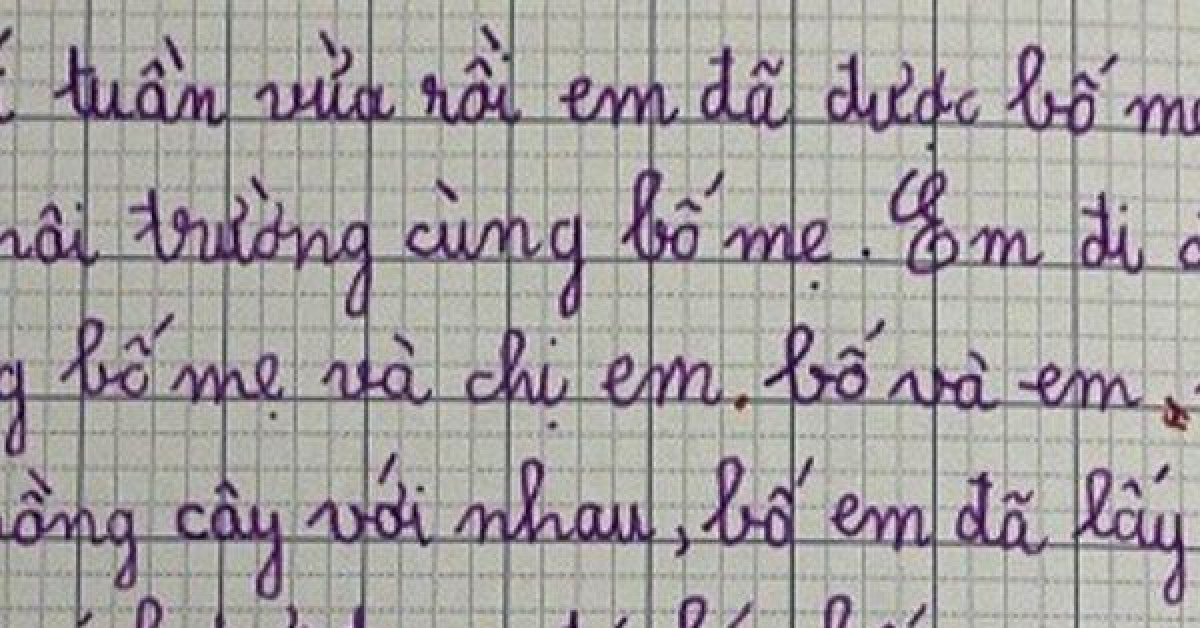 tuần vừa rồi em đã được bố
trường cùng bố mẹ. Em đi
bố mẹ và chị em. bố và em
cây với nhau, bố em đã lấy